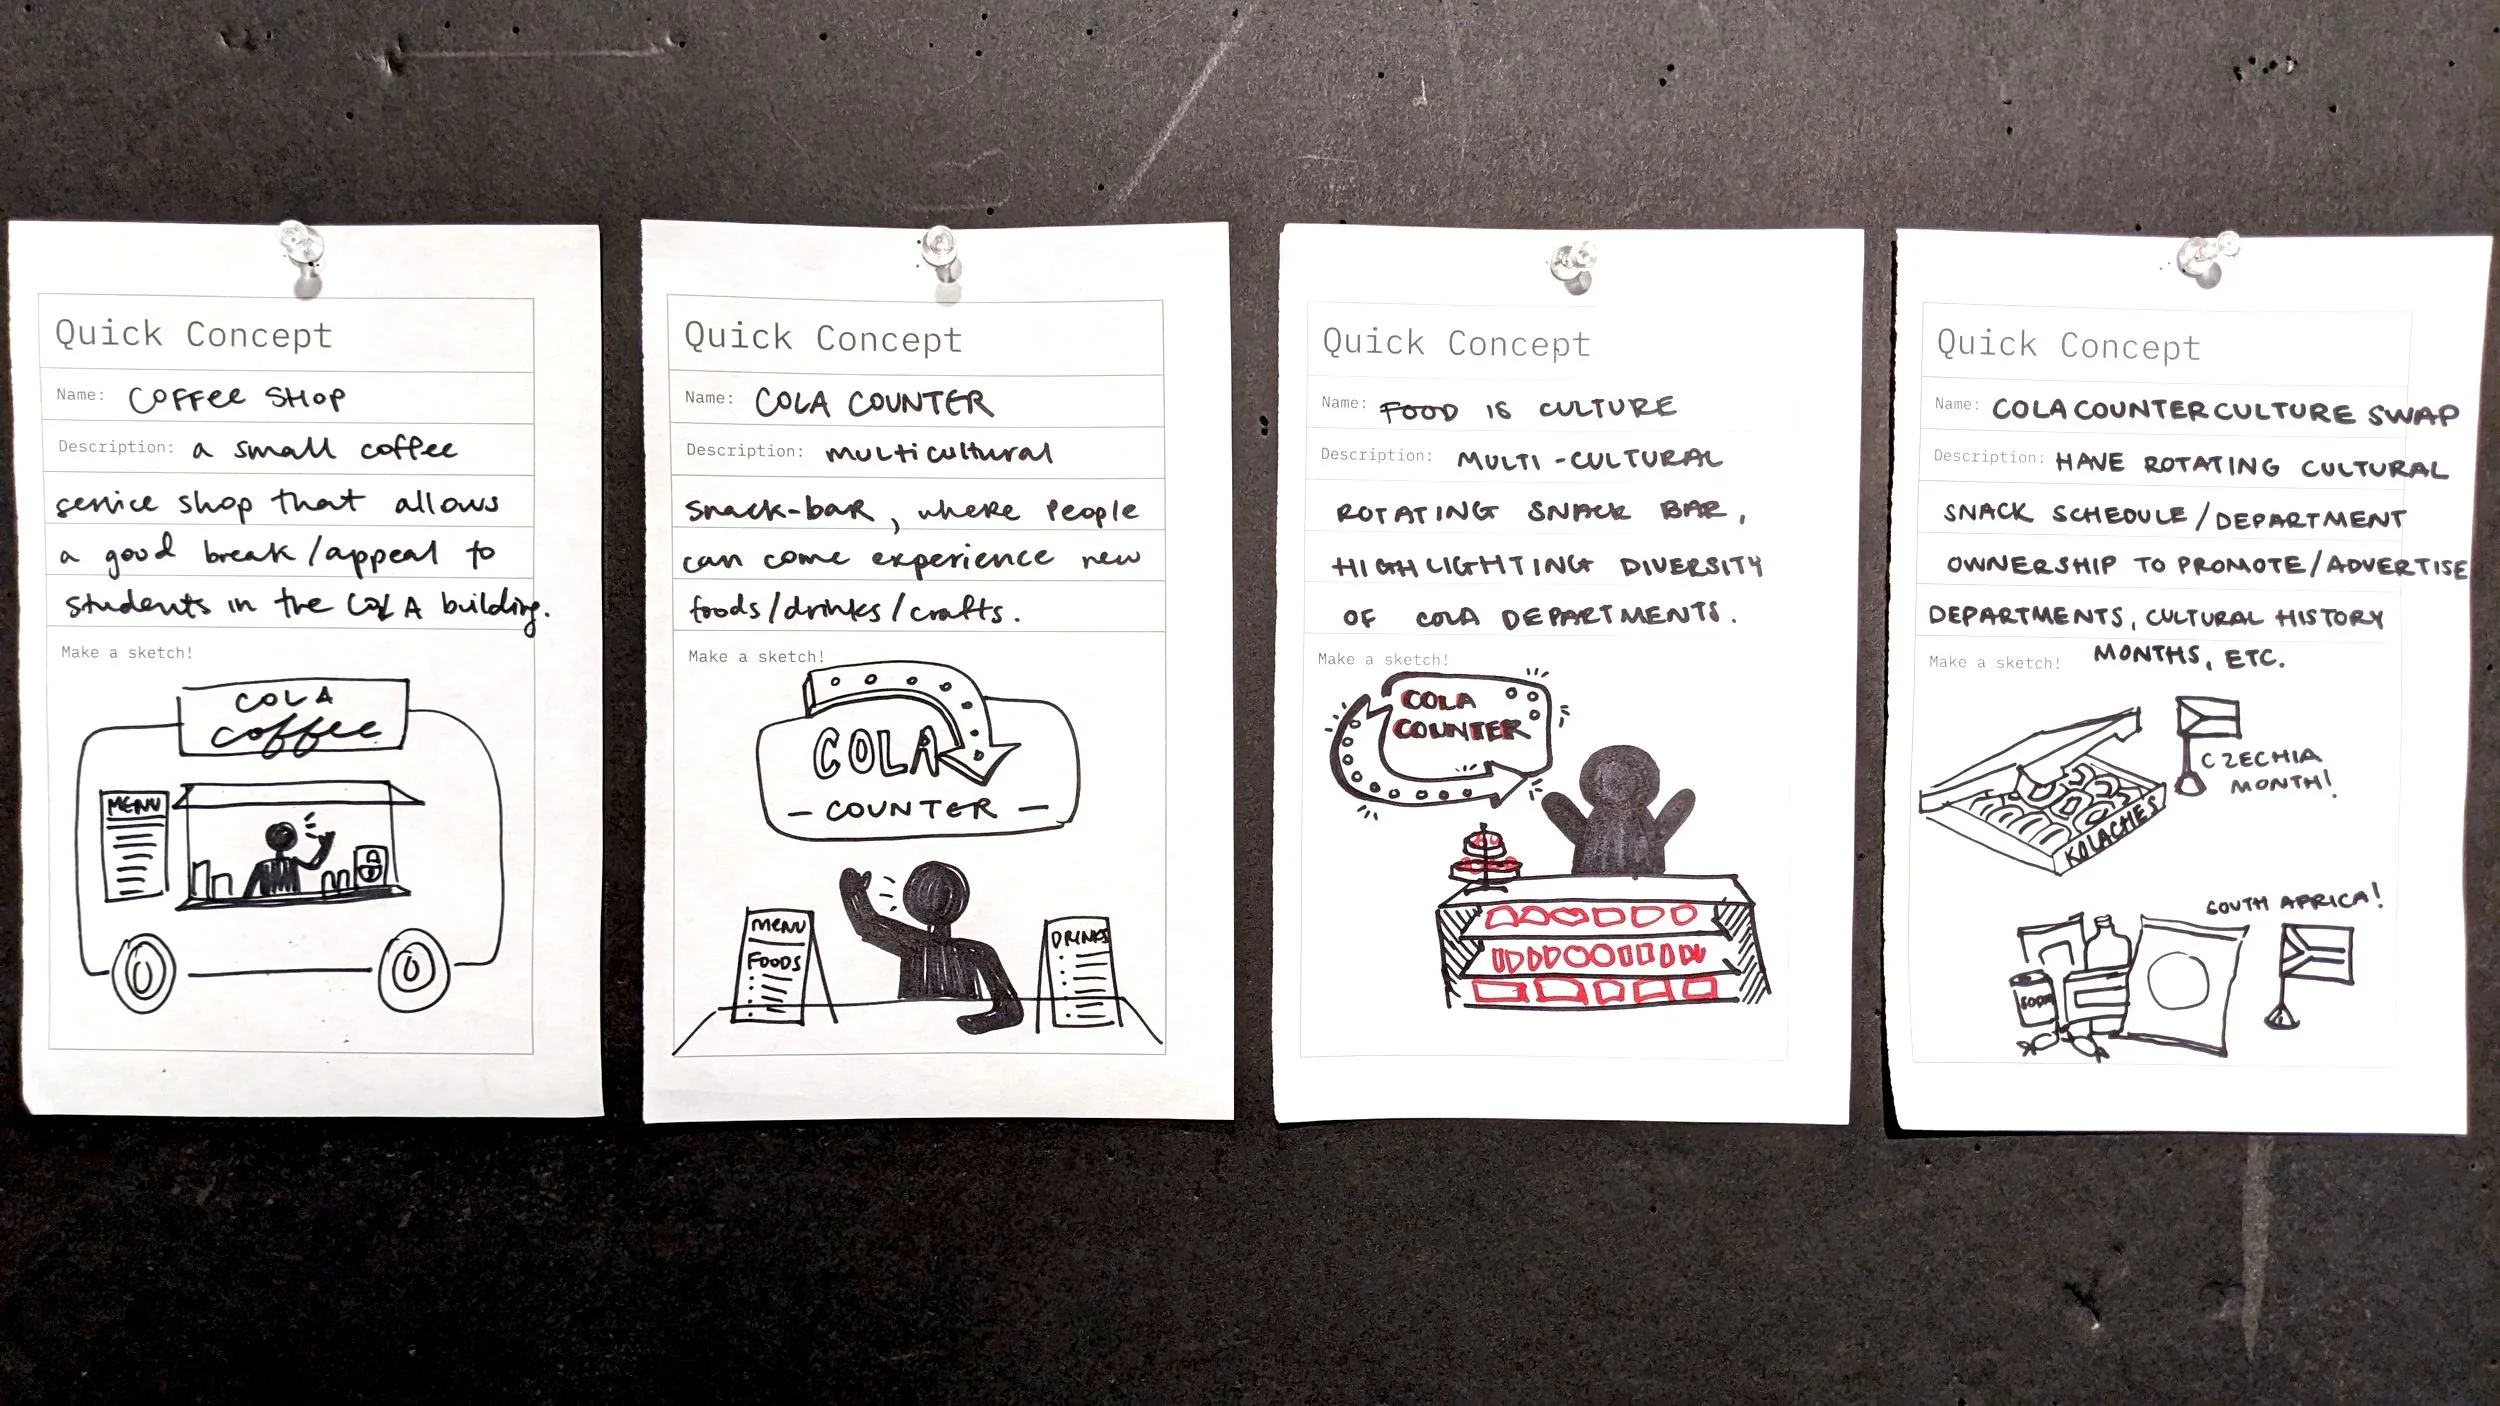 Quick Concept
Name: COFFEE SHOP
Description: a small coffee
service shop that allows
a good break/appeal to
students in the COLA building.
Make a sketch!
COLA
coffee
MENU
Quick Concept
Name: COLA COUNTER
Description: multicultural
snack-bar, where people
can come experience new
foods/drinks/crafts.
Make a sketch!
COLA
- COUNTER -
MENU
FOODS
DRINKS
Quick Concept
Name: FOOD IS CULTURE
Description: MULTI-CULTURAL
ROTATING SNACK BAR,
HIGHLIGHTING DIVERSITY
OF COLA DEPARTMENTS.
Make a sketch!
COLA
COUNTER
Quick Concept
Name: COLA COUNTER CULTURE SWAP
Description: HAVE ROTATING CULTURAL
SNACK SCHEDULE/DEPARTMENT
OWNERSHIP TO PROMOTE/ADVERTISE
DEPARTMENTS, CULTURAL HISTORY
MONTHS, ETC.
Make a sketch!
CZECHIA
MONTH!
KOLACHES
SOUTH AFRICA!
SODA